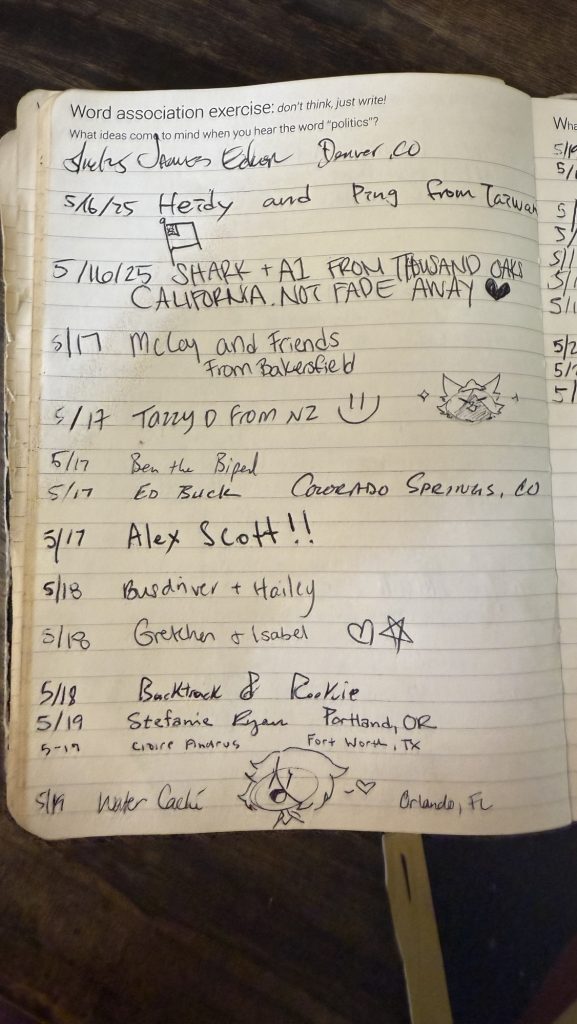 Word association exercise: don't think, just write!
What ideas come to mind when you hear the word "politics"?
Denver, CO
5/16/25 Heidy and Ping from Taiwan
5/16/25 SHARK + AI FROM THOUSAND OAKS
CALIFORNIA. NOT FADE AWAY
5/17 McCoy and Friends
From Bakersfield
5/17 Tazzy D From NZ
5/17 Ben the Biped
5/17 ED Buck COLORADO SPRINGS, CO
5/17 Alex Scott!!
5/18 Busdriver + Hailey
5/18 Gretchen + Isabel
5/18 Backtrack & Rookie
5/19 Stefanie Ryan Portland, OR
5-19 Claire Andrus Fort Worth, TX
5/19 Water Caché Orlando, FL
Wha
5/
5/
5/
5/
5/1
5/1
5/1
5/2
5/2
5/